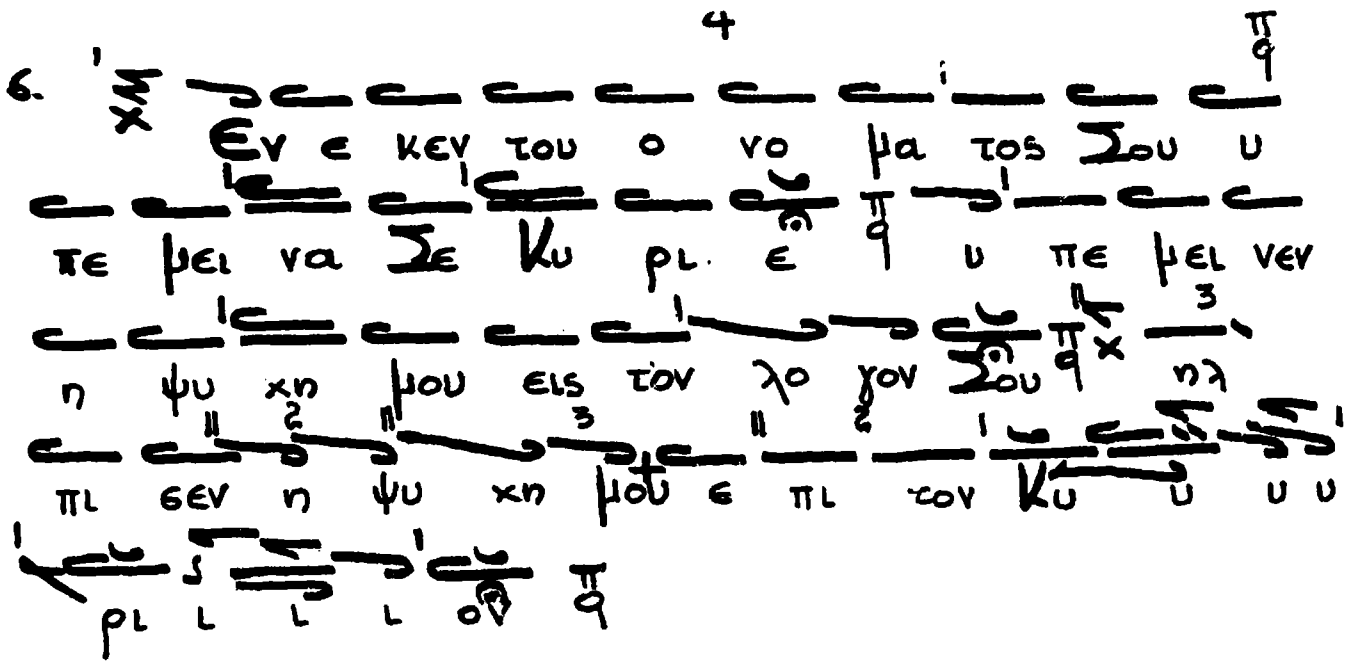 4
6. Εν ε κεν του ο νο μα τος Σου υ
πε μει να Σε Κυ ρι ε υ πε μει νεν
η ψυ χη μου εις τὸν λο γον Σου ηλ
πι σεν η ψυ χη μου ε πι τον Κυ υ υ υ
ρι ι ι ι ον